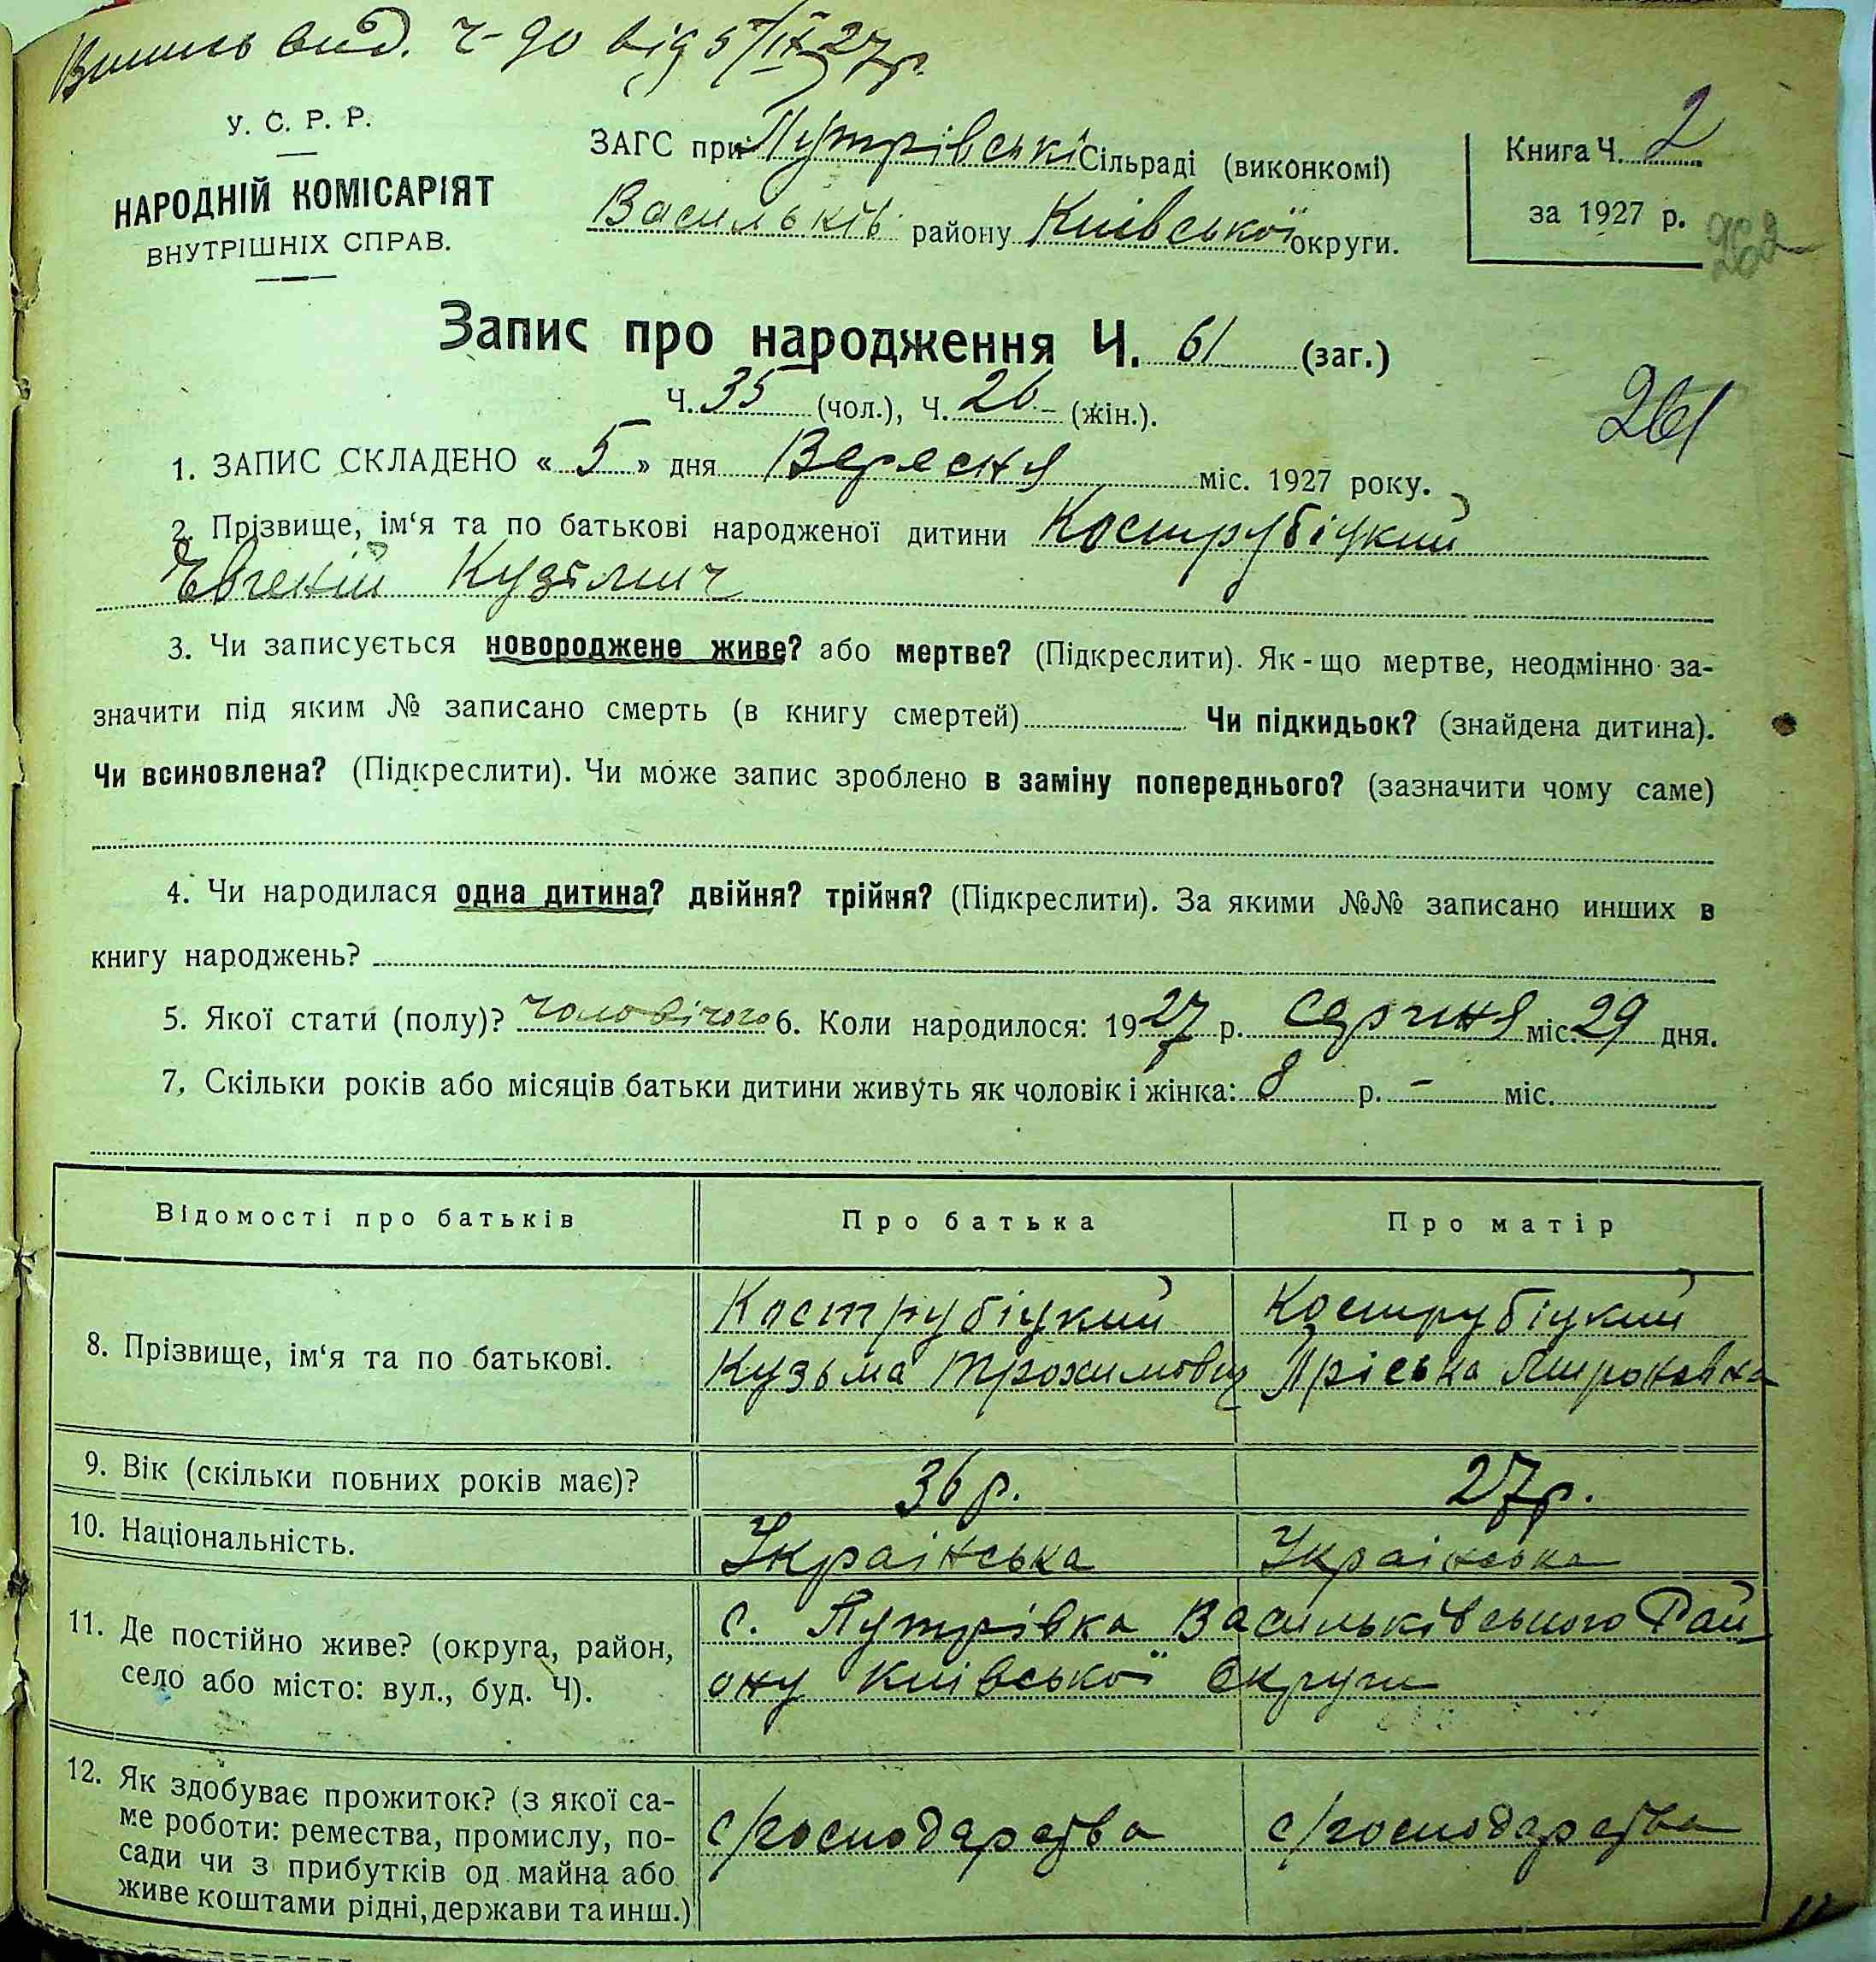 Випись вид. ч-90 від 5/IX 27р.
У. С. Р. Р.
НАРОДНІЙ КОМІСАРІЯТ
ВНУТРІШНІХ СПРАВ.
ЗАГС при Путрівські Сільраді (виконкомі)
Васильків. району Київської округи.
Книга Ч. 2
за 1927 р.
262
Запис про народження Ч. 61 (заг.)
Ч. 35 (чол.), Ч. 26 - (жін.).
261
1. ЗАПИС СКЛАДЕНО « 5 » дня Вересня міс. 1927 року.
2. Прізвище, ім‘я та по батькові народженої дитини Кострубіцкий
Євгеній Кузьмич
3. Чи записується новороджене живе? або мертве? (Підкреслити). Як-що мертве, неодмінно за-
значити під яким № записано смерть (в книгу смертей) Чи підкидьок? (знайдена дитина).
Чи всиновлена? (Підкреслити). Чи може запис зроблено в заміну попереднього? (зазначити чому саме)
4. Чи народилася одна дитина? двійня? трійня? (Підкреслити). За якими №№ записано инших в
книгу народжень?
5. Якої стати (полу)? чоловічого 6. Коли народилося: 1927 р. Серпня міс. 29 дня.
7. Скільки років або місяців батьки дитини живуть як чоловік і жінка: 8 р. - міс.
Відомості про батьків Про батька Про матір
8. Прізвище, ім‘я та по батькові.
Кострубіцкий
Кузьма Трохимович
Кострубіцкий
Пріська Мироновна
9. Вік (скільки повних років має)? 36 р. 27 р.
10. Національність. Украінська Украінська
11. Де постійно живе? (округа, район,
село або місто: вул., буд. Ч).
с. Путрівка Васильківського Рай
ону Київської Округи
12. Як здобуває прожиток? (з якої са-
ме роботи: ремества, промислу, по-
сади чи з прибутків од майна або
живе коштами рідні, держави та инш.)
с/господарства
с/господарства